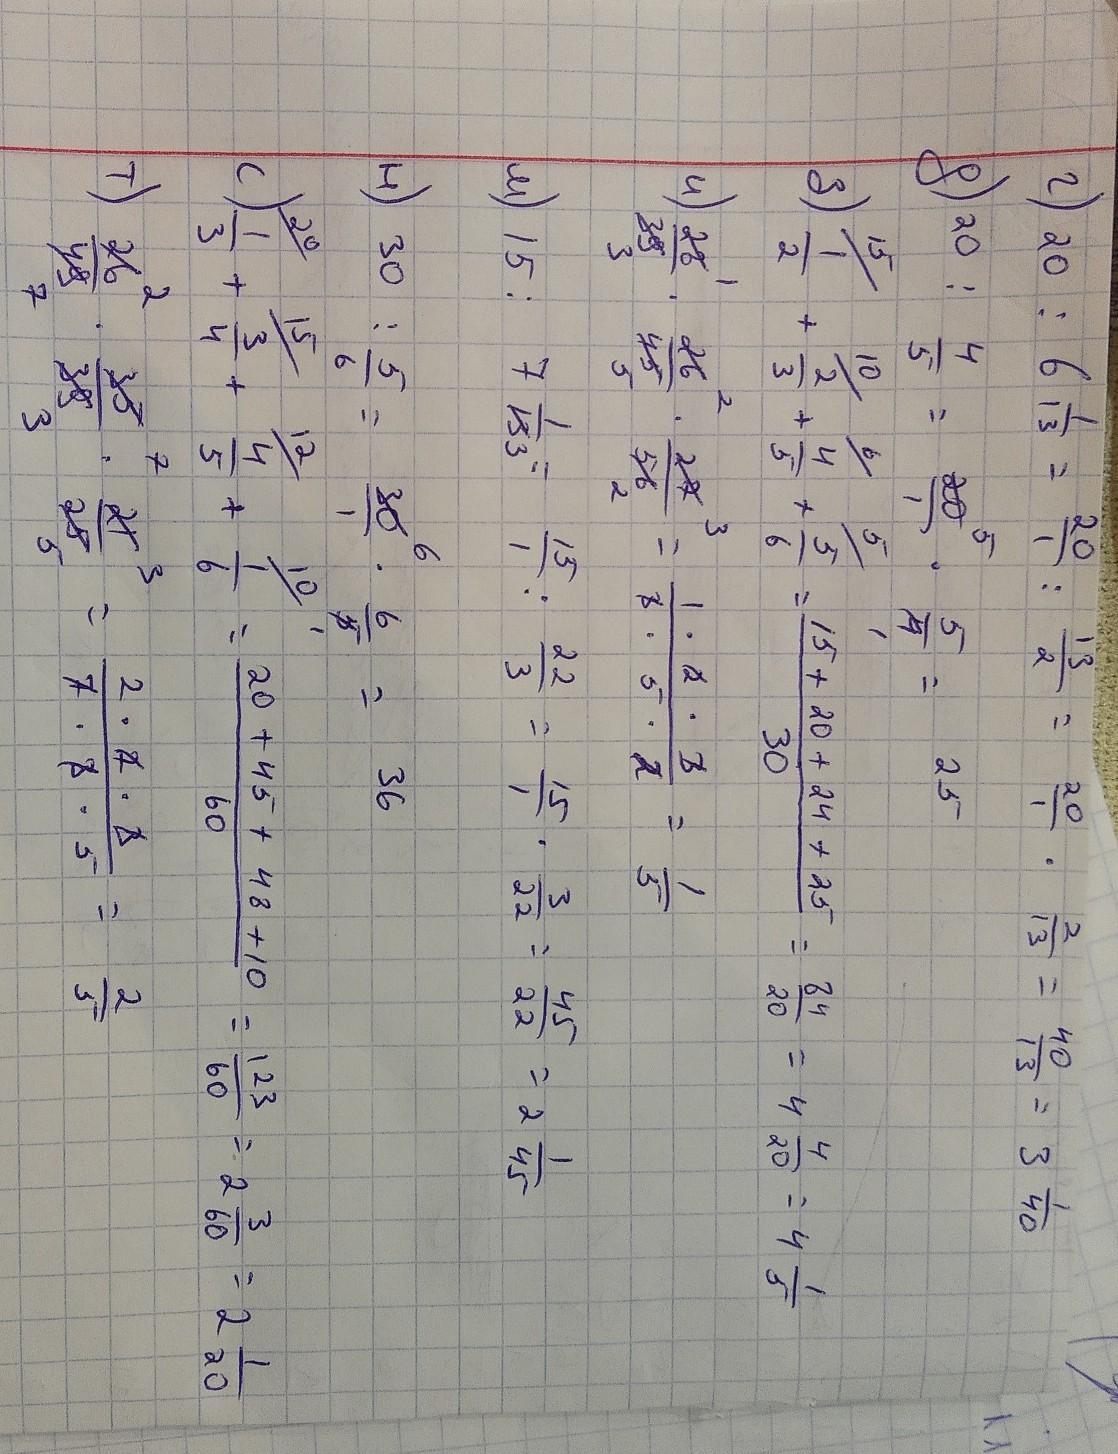 г) 20 : 6 1/13 = 20/1 : 13/2 = 20/1 · 2/13 = 40/13 = 3 1/40
д) 20 : 4/5 = 20/1 5 · 5/4 1 = 25
з) 15/ 1/2 + 10/ 2/3 + 6/ 4/5 + 5/ 5/6 = 15 + 20 + 24 + 25 / 30 = 84/20 = 4 4/20 = 4 1/5
и) 1 3 · 26/45 2 5 · 27/56 3 2 = 1 · 2 · 3 / 3 · 5 · 2 = 1/5
ш) 15 : 7 1/3 = 15/1 : 22/3 = 15/1 · 3/22 = 45/22 = 2 1/45
н) 30 : 5/6 = 30/1 6 · 6/5 1 = 36
с) 20/ 1/3 + 15/ 3/4 + 12/ 4/5 + 10/ 1/6 = 20 + 45 + 48 + 10 / 60 = 123/60 = 2 3/60 = 2 1/20
т) 26/49 2 7 · 35/39 7 3 · 21/25 3 5 = 2 · 7 · 3 / 7 · 3 · 5 = 2/5